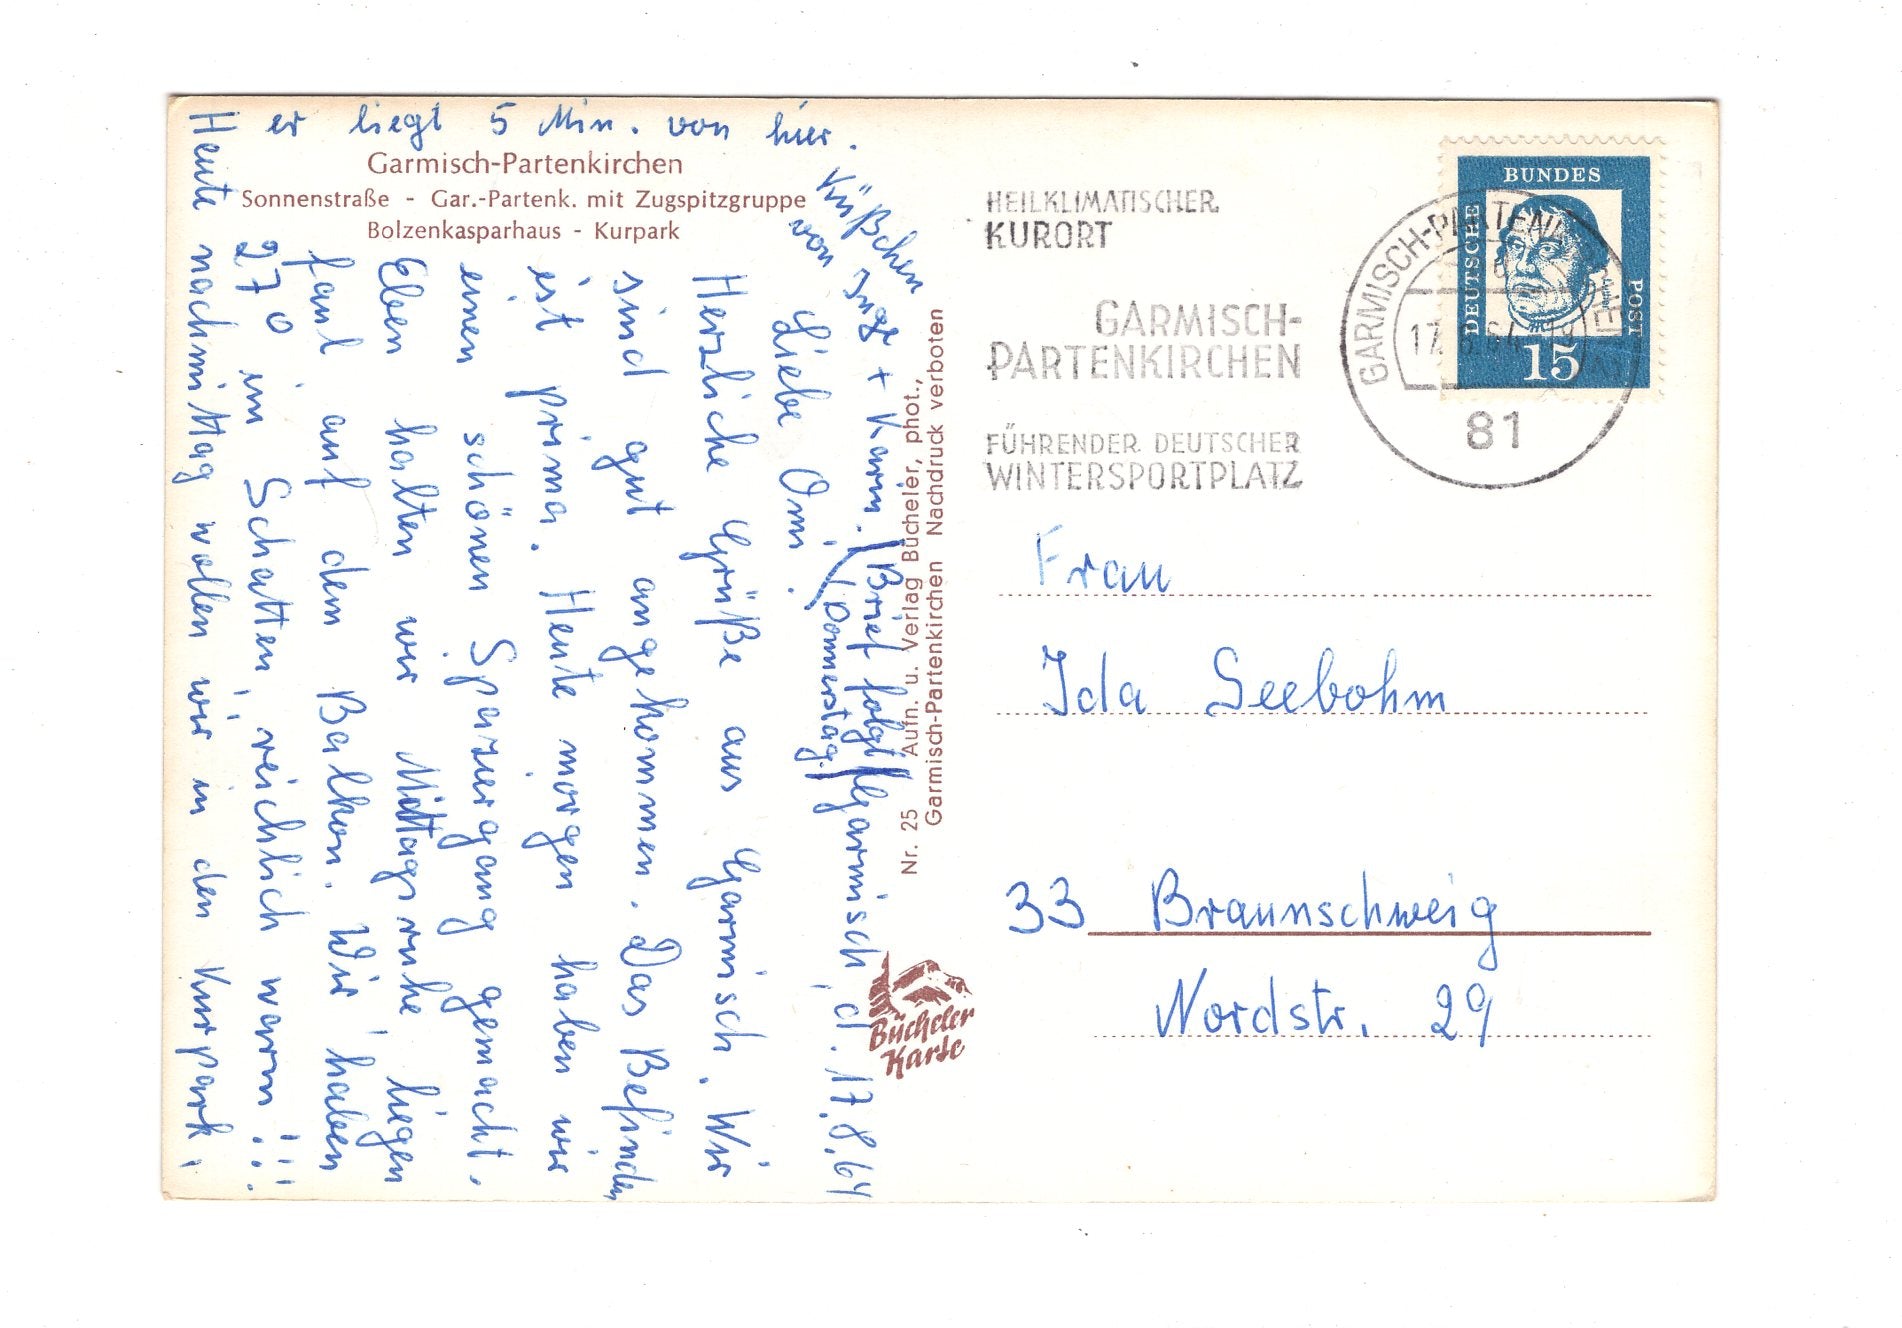 Garmisch-Partenkirchen
Sonnenstraße - Gar.-Partenk. mit Zugspitzgruppe
Bolzenkasparhaus - Kurpark
Garmisch, d. 17.8.64
Liebe Omi!
Herzliche Grüße aus Garmisch. Wir
sind gut angekommen. Das Befinden
ist prima. Heute morgen haben wir
einen schönen Spaziergang gemacht.
Eben halten wir Mittagsruhe, liegen
faul auf dem Balkon. Wir haben
27° im Schatten, reichlich warm!!!
Heute nachmittag wollen wir in den Kurpark,
er liegt 5 Min. von hier.
Küßchen
von Inge + Karin. (Brief folgt
Donnerstag.)
Nr. 25 Aufn. u. Verlag Bücheler, phot.,
Garmisch-Partenkirchen Nachdruck verboten
Bücheler
Karte
HEILKLIMATISCHER
KURORT
GARMISCH-
PARTENKIRCHEN
FÜHRENDER DEUTSCHER
WINTERSPORTPLATZ
GARMISCH-PARTENKIRCHEN
17.8.64
81
DEUTSCHE
BUNDES
POST
15
Frau
Ida Seebohm
33 Braunschweig
Nordstr. 29